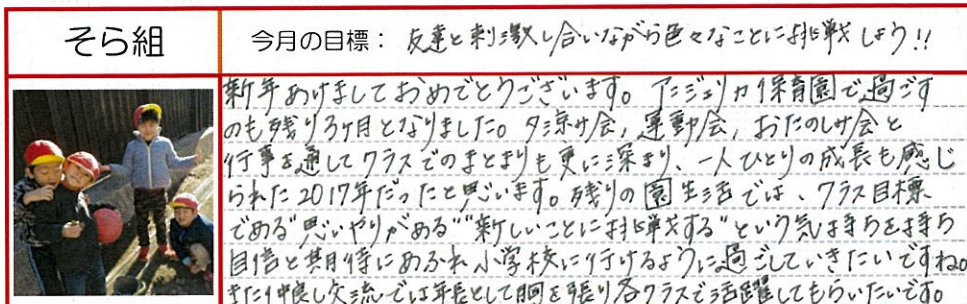 そら組
今月の目標: 友達と刺激し合いながら色々なことに挑戦しよう!!
新年あけましておめでとうございます。アンジェリカ保育園で過ごす
のも残り3ヶ月となりました。夕涼み会, 運動会, おたのしみ会と
行事を通してクラスでのまとまりも更に深まり、一人ひとりの成長も感じ
られた2017年だったと思います。残りの園生活では、クラス目標
である"思いやりがある""新しいことに挑戦する"という気持ちを持ち
自信と期待にあふれ小学校に行けるように過ごしていきたいですね。
また仲良し交流では年長として胸を張り各クラスで活躍してもらいたいです。